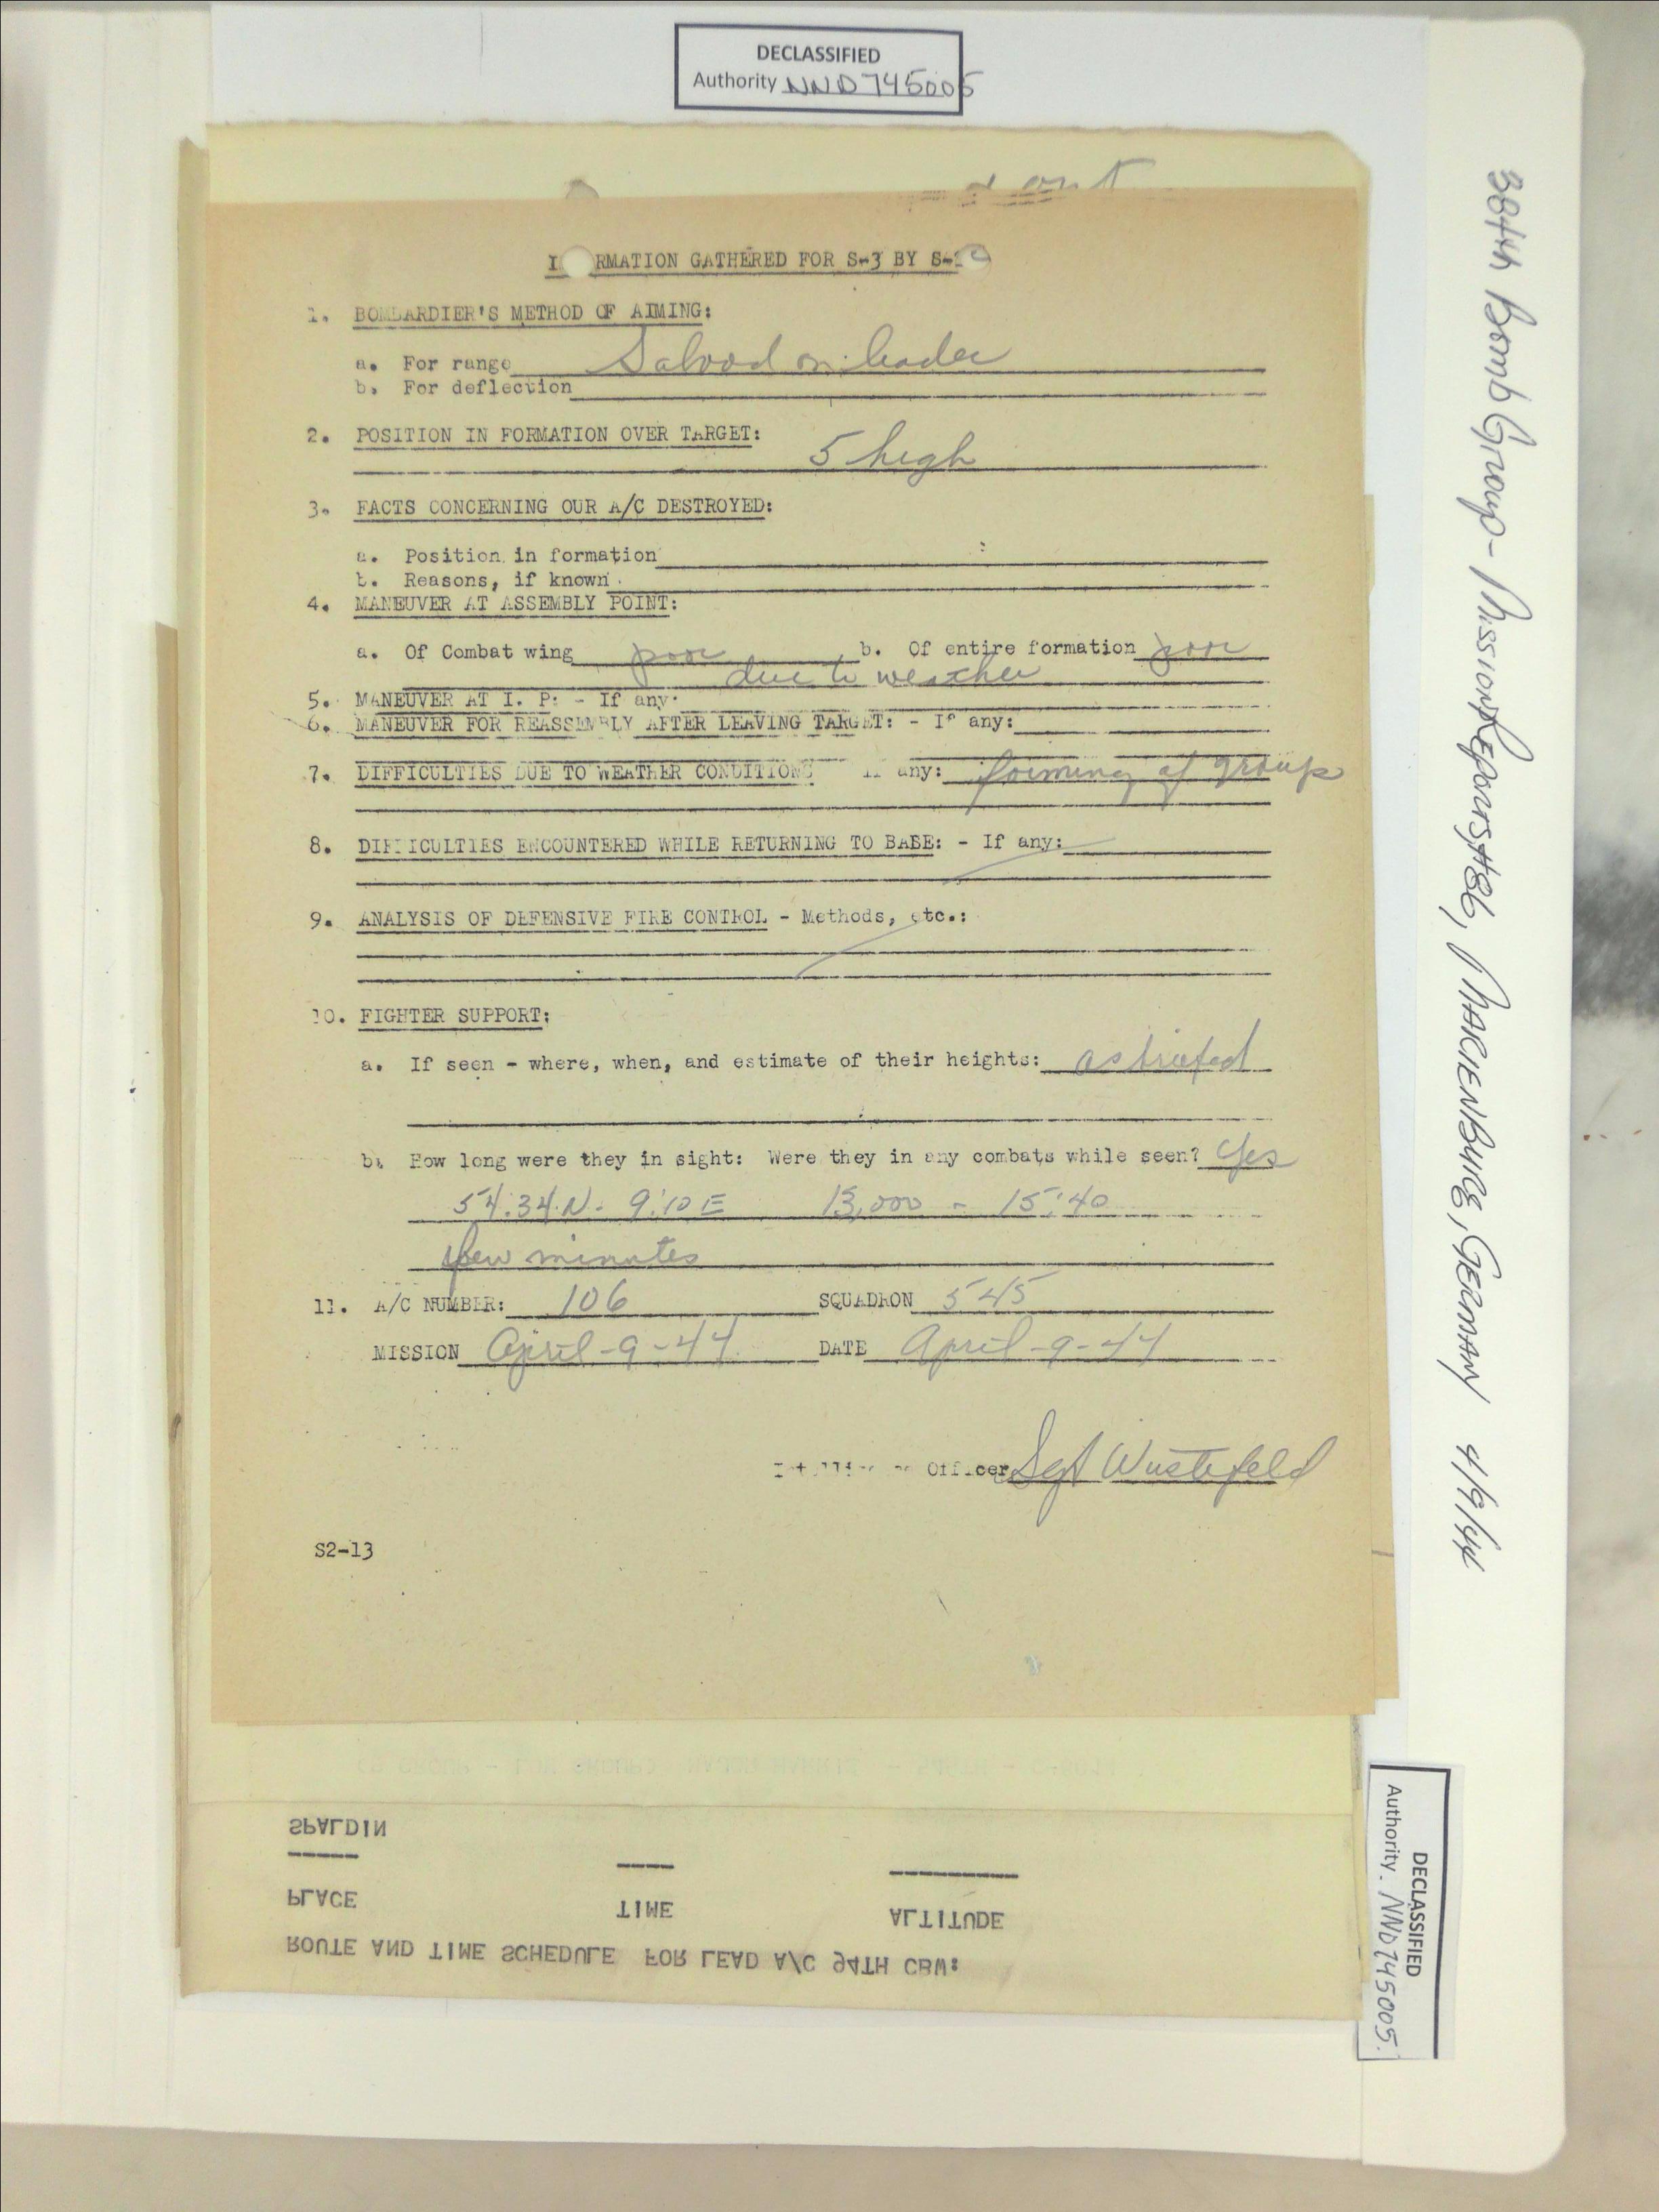 DECLASSIFIED
Authority NND 745005
I RMATION GATHERED FOR S-3 BY S-
1. BOMBARDIER'S METHOD OF AIMING:
a. For range Salvoed on leader
b. For deflection
2. POSITION IN FORMATION OVER TARGET:
5 high
3. FACTS CONCERNING OUR A/C DESTROYED:
a. Position in formation
b. Reasons, if known
4. MANEUVER AT ASSEMBLY POINT:
a. Of Combat wing poor b. Of entire formation poor
due to weather
5. MANEUVER AT I. P: - If any:
6. MANEUVER FOR REASSEMBLY AFTER LEAVING TARGET: - If any:
7. DIFFICULTIES DUE TO WEATHER CONDITIONS If any: forming of group
8. DIFFICULTIES ENCOUNTERED WHILE RETURNING TO BASE: - If any:
9. ANALYSIS OF DEFENSIVE FIRE CONTROL - Methods, etc.:
10. FIGHTER SUPPORT:
a. If seen - where, when, and estimate of their heights: as briefed
b. How long were they in sight: Were they in any combats while seen? Yes
54:34 N - 9:10 E 15,000 - 15:40
few minutes
11. A/C NUMBER: 106 SQUADRON 545
MISSION April-9-44 DATE April-9-44
Intelligence Officer Sgt Wustefeld
S2-13
SPALDIN
PLACE TIME ALTITUDE
ROUTE AND TIME SCHEDULE FOR LEAD A/C 94TH CBW:
384th Bomb Group - Mission Reports #86, MARIENBURG, GERMANY 4/9/44
DECLASSIFIED
Authority NND 745005